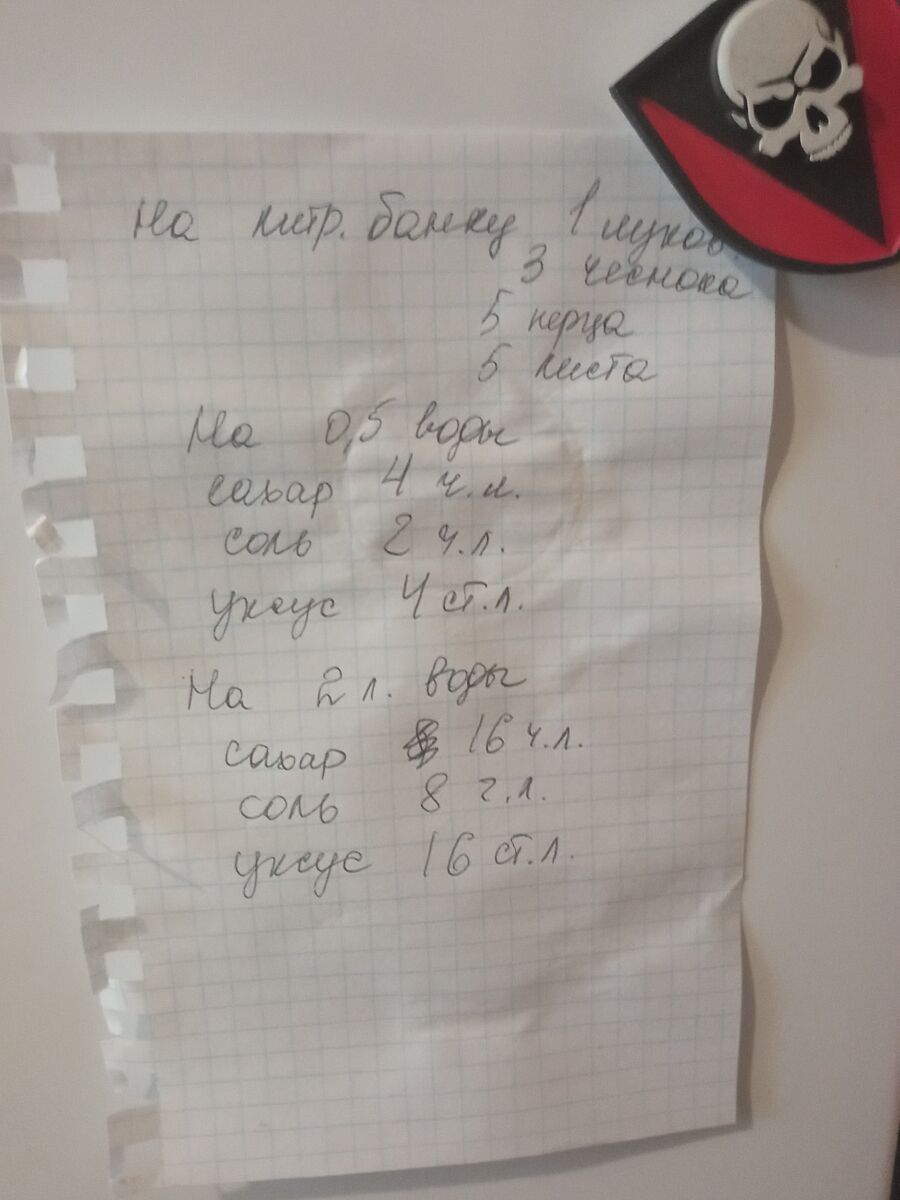 На литр. банку 1 луков.
3 чеснока
5 перца
5 листа
На 0,5 воды
сахар 4 ч.л.
соль 2 ч.л.
уксус 4 ст.л.
На 2 л. воды
сахар 16 ч.л.
соль 8 ч.л.
уксус 16 ст.л.